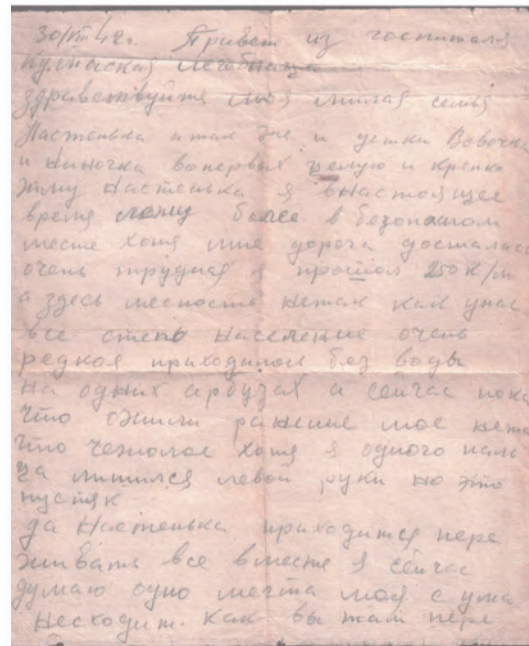 30/VIII 42 г. Привет из госпиталя
лечебница
здравствуйте моя милая семья
Настенька а так же и детки Вовочка
и Ниночка вопервых целую и крепко
жму Настенька я внастоящее
время лежу более в безопасном
месте хотя мне дорога досталась
очень трудная я прошол 250 к/м
а здесь месность нетак как унас
все степь население очень
редкое приходилось без воды
на одних арбузах а сейчас пока
что ожили ранение мое нета
что чежолое хотя я одного паль
ца лишился левой руки но это
пустяк
да Настенька приходится пере
живать все вместе я сейчас
думаю одно мечта моя с ума
несходит. Как вы там пере